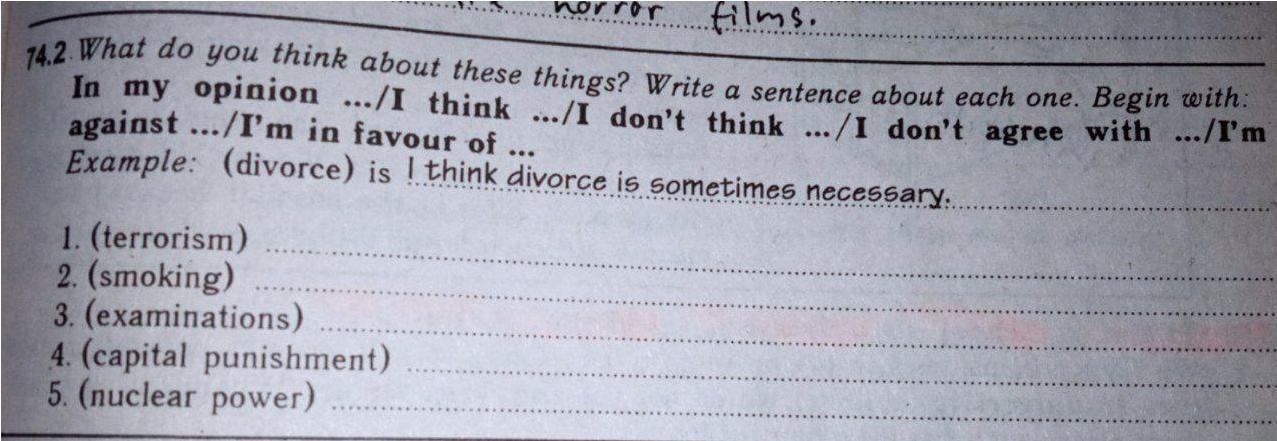 horror films.
74.2. What do you think about these things? Write a sentence about each one. Begin with:
In my opinion .../I think .../I don't think .../I don't agree with .../I'm
against .../I'm in favour of ...
Example: (divorce) is I think divorce is sometimes necessary.
1. (terrorism)
2. (smoking)
3. (examinations)
4. (capital punishment)
5. (nuclear power)